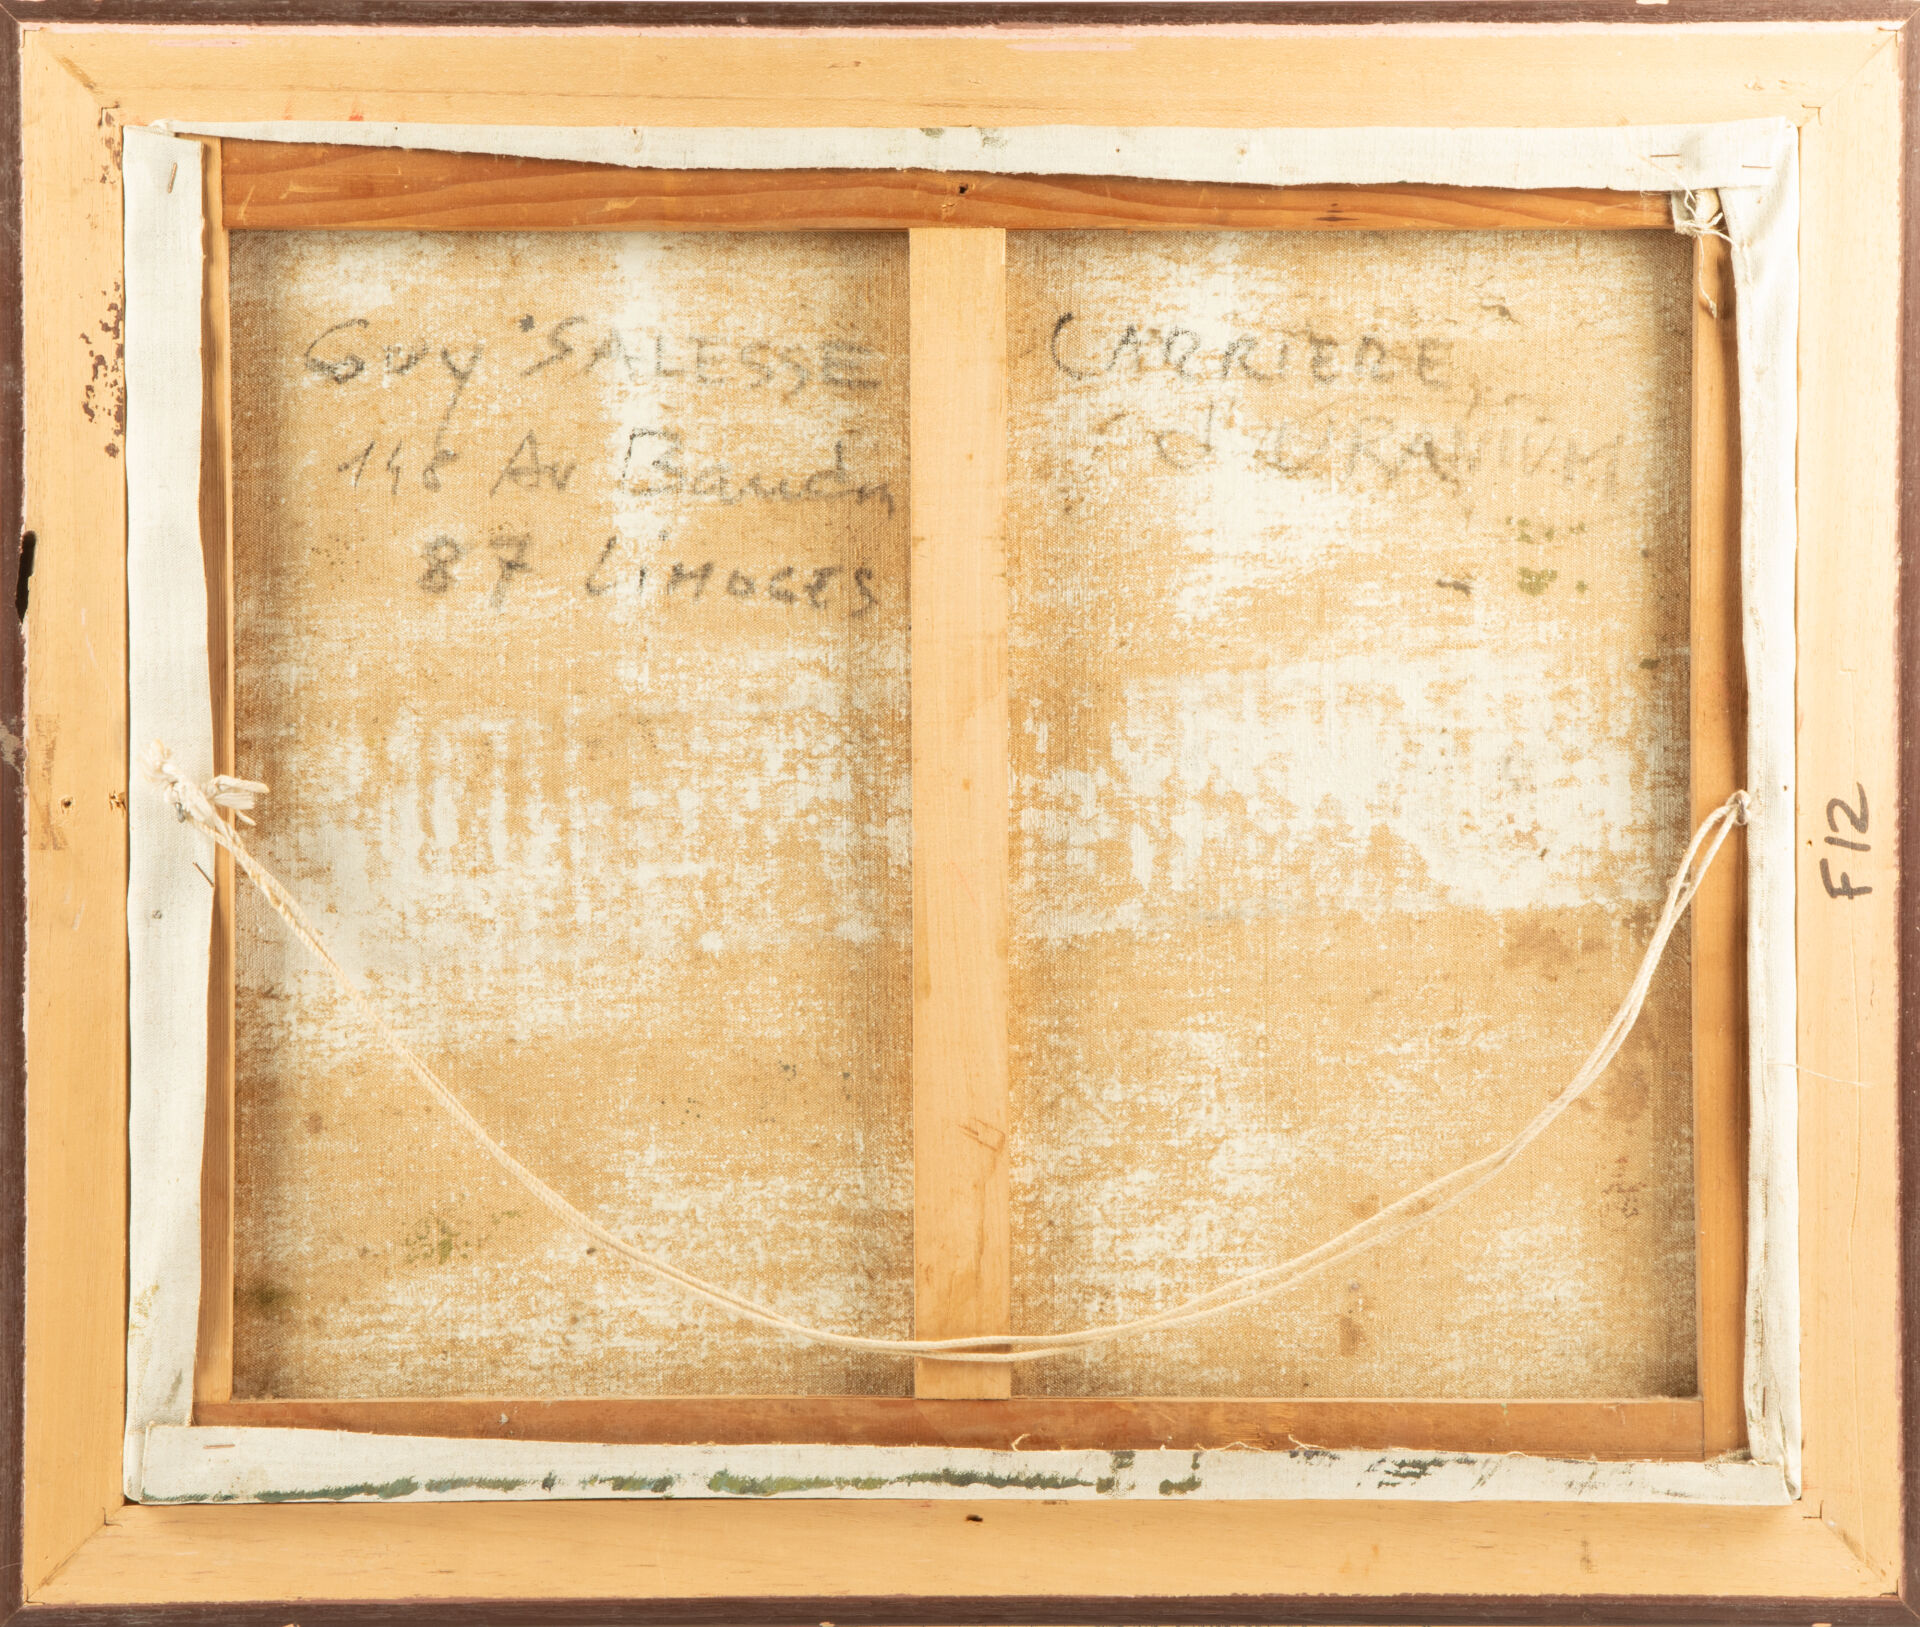 Guy SALESSE
148 Av Baudin
87 LIMOGES
CARRIERE
d'URANIUM
F12